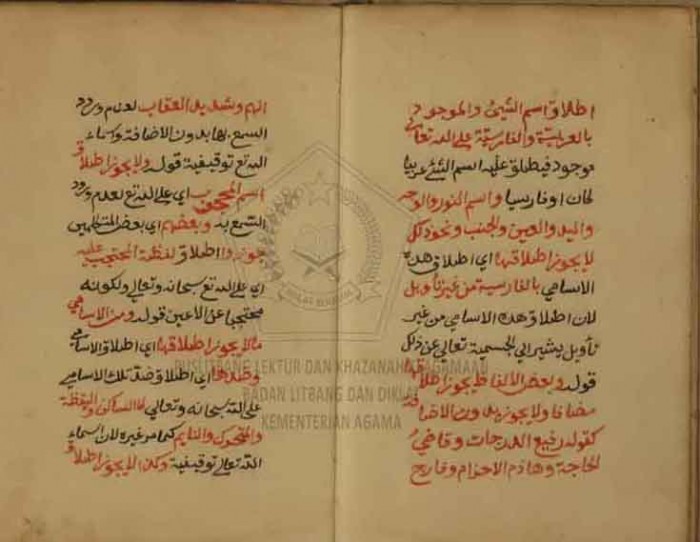 اطلاق اسم الشيئ والموجود
بالعربية والفارسية على الله تعالى
موجود فيطلق عليه اسم الشيئ عربيا
كان او فارسيا واسم النور والوجه
واليد والعين والجنب ونحو ذلك
لا يجوز اطلاقها اى اطلاق هذه
الاسامي بالفارسية من غير تأويل
لان اطلاق هذه الاسامي من غير
تأويل يشير الى الجسمية تعالى عن ذلك
قوله وبعض الالفاظ يجوز اطلاقها
مضافا ولا يجوز بدون الاضافة
كقوله رفيع الدرجات وقاضي
الحاجة وهازم الاحزام وفارج
الهم وشديد العقاب لعدم ورود
السمع بها بدون الاضافة وسماء
الله تع توقيفية قوله ولا يجوز اطلاق
اسم المحجوب اي على الله تع لعدم ورود
السمع به وبعضهم اي بعض المتكلمين
جوزوا اطلاق لفظة المحتجب عليه
اي على الله تع سبحانه وتعالى ولكونه
محتجبا عن الاعين قوله ومن الاسامي
ما لا يجوز اطلاقها اي اطلاق الاسامي
وضدها اي اطلاق ضد تلك الاسامي
على الله سبحانه وتعالى كالساكن واليقظة
والمتحرك والنايم كما مر غيره لان اسماء
الله تعالى توقيفية وكذا لا يجوز اطلاق
PUSLITBANG LEKTUR DAN KHAZANAH KEAGAMAAN
BADAN LITBANG DAN DIKLAT
KEMENTERIAN AGAMA